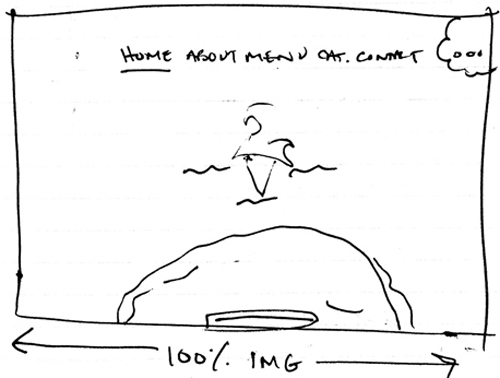 HOME ABOUT MENU CAT. CONTACT
100% IMG